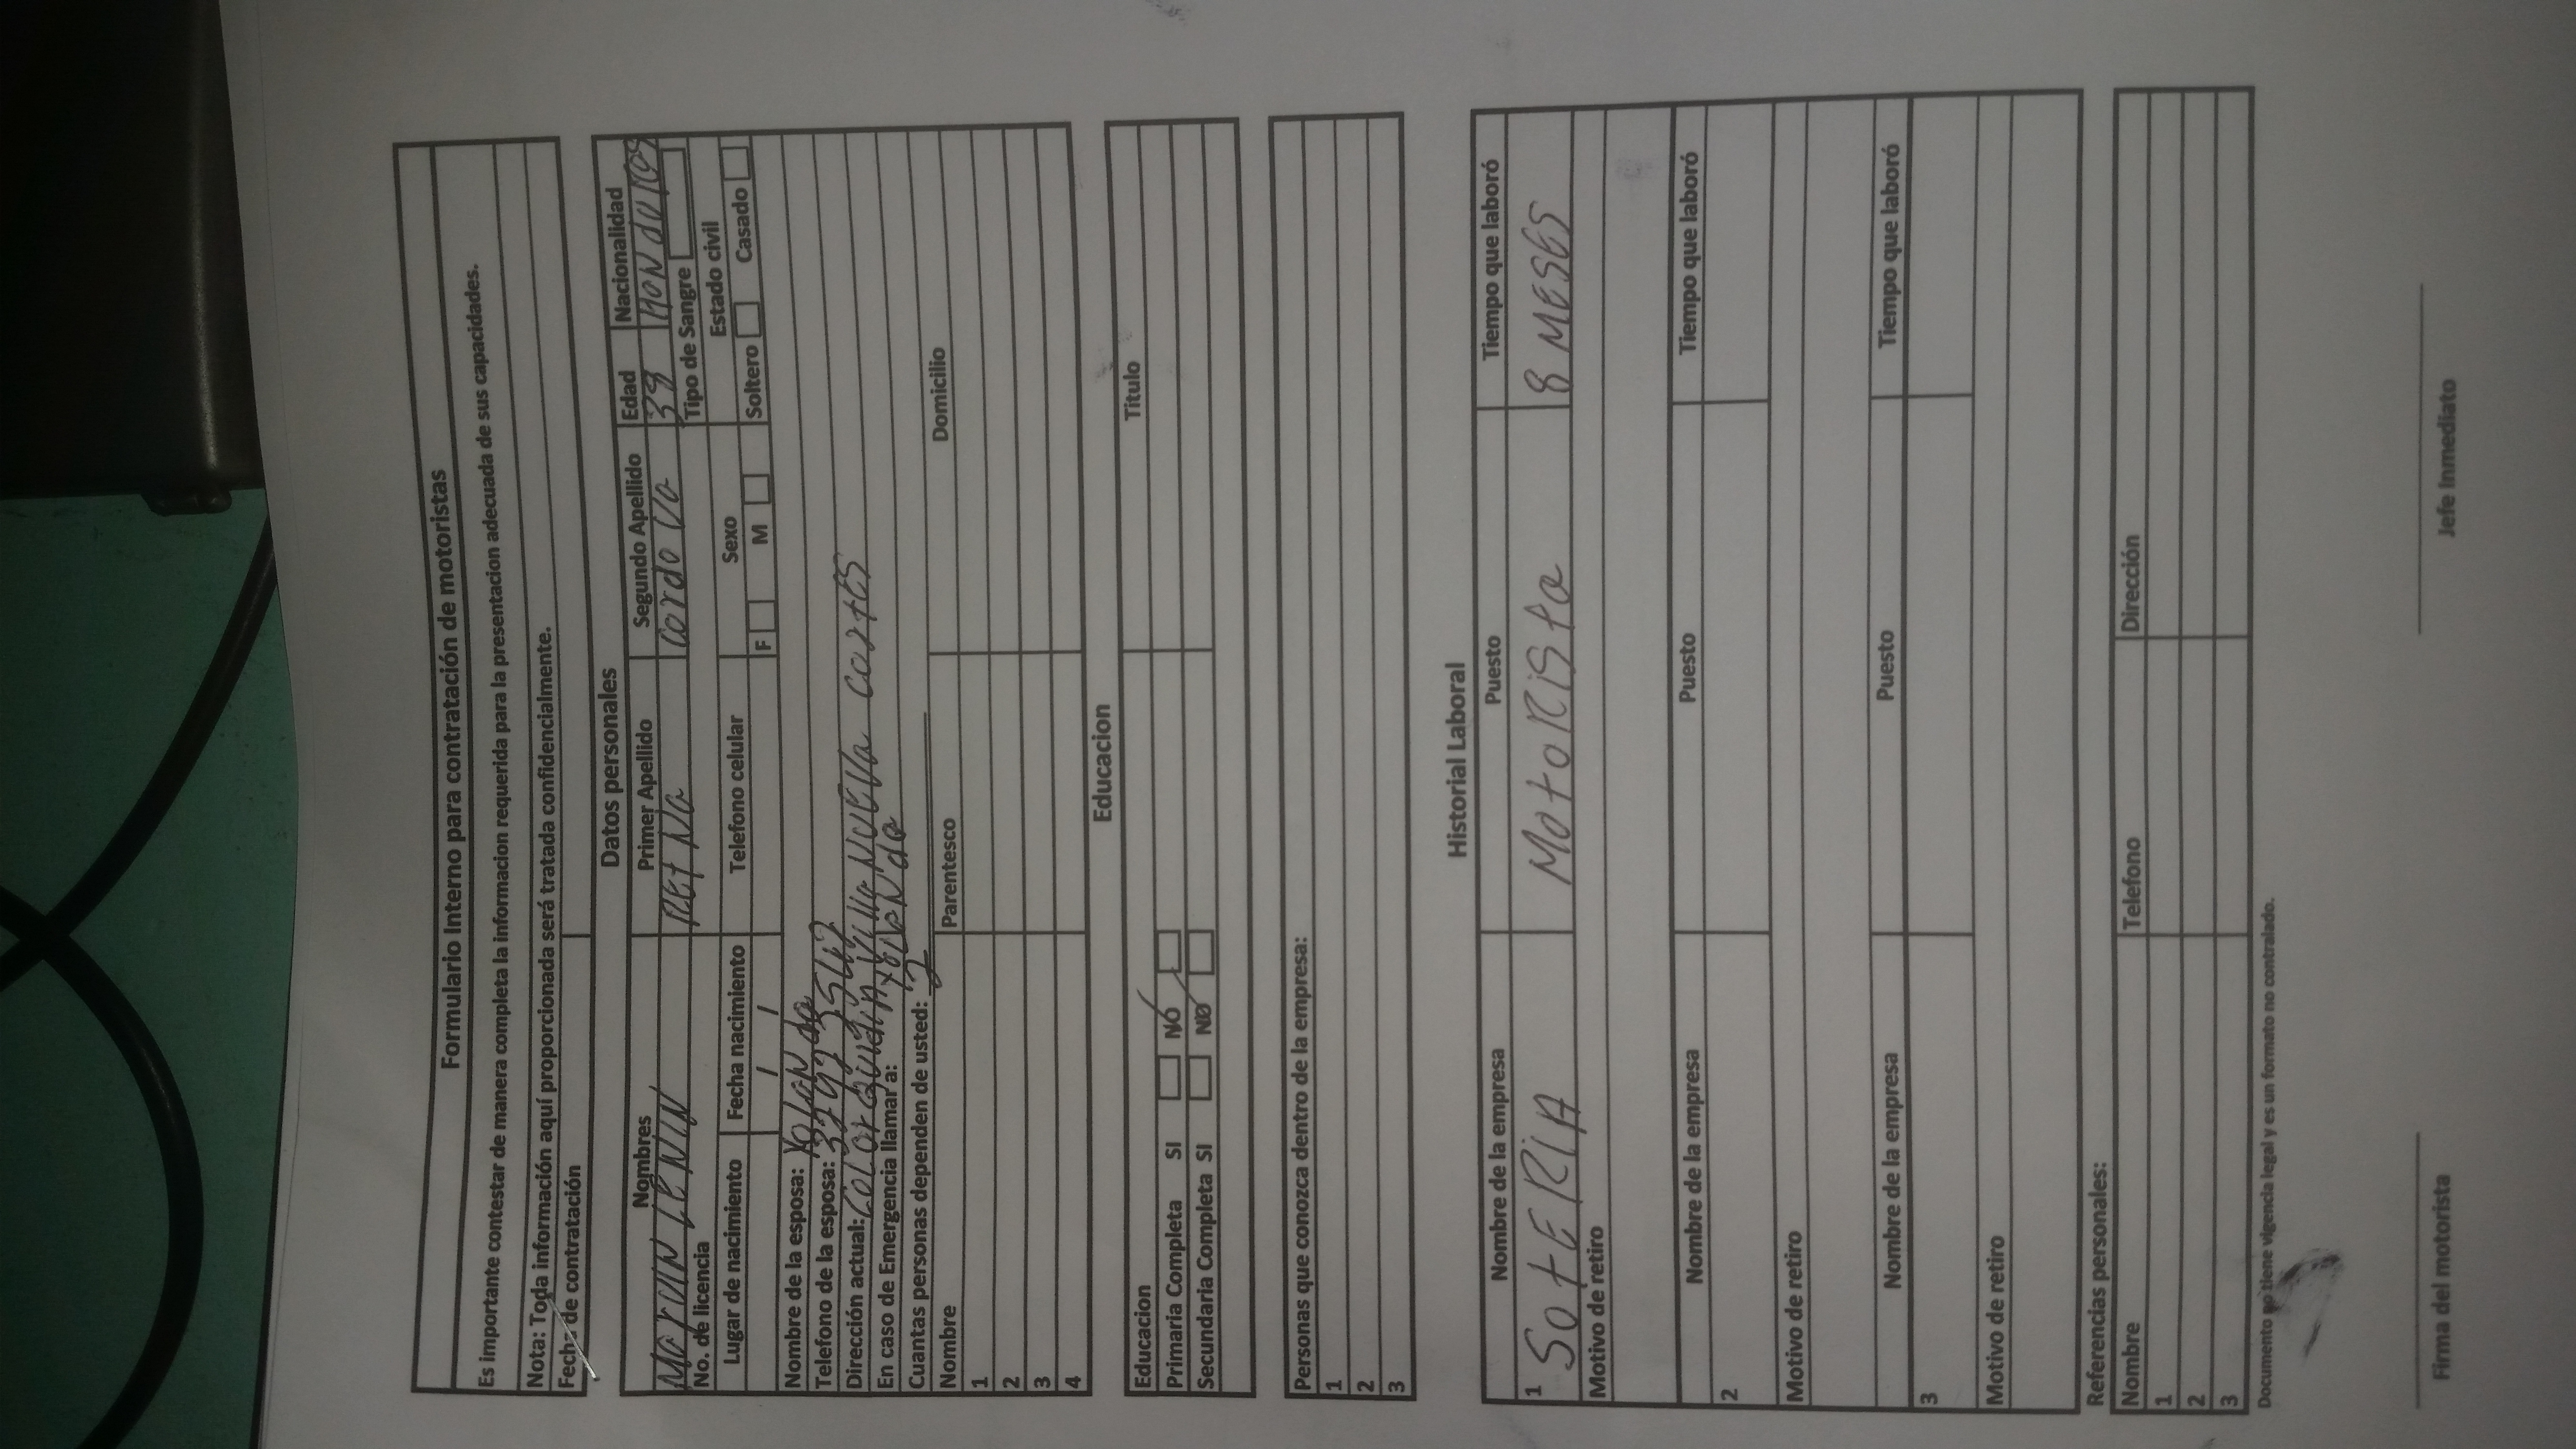 Formulario Interno para contratación de motoristas
Es importante contestar de manera completa la informacion requerida para la presentacion adecuada de sus capacidades.
Nota: Toda información aquí proporcionada será tratada confidencialmente.
Fecha de contratación
Datos personales
Nombres Primer Apellido Segundo Apellido Edad Nacionalidad
LENIN cordova
No. de licencia Tipo de Sangre
Lugar de nacimiento Fecha nacimiento Telefono celular Sexo Estado civil
/ / F M Soltero Casado
Nombre de la esposa: Yolanda
Telefono de la esposa:
Dirección actual: cortes
En caso de Emergencia llamar a:
Cuantas personas dependen de usted: 2
Nombre Parentesco Domicilio
1
2
3
4
Educacion
Educacion Titulo
Primaria Completa SI NO
Secundaria Completa SI NO
Personas que conozca dentro de la empresa:
1
2
3
Historial Laboral
Nombre de la empresa Puesto Tiempo que laboró
1 SotERiA MotoRiSta 8 MESES
Motivo de retiro
Nombre de la empresa Puesto Tiempo que laboró
2
Motivo de retiro
Nombre de la empresa Puesto Tiempo que laboró
3
Motivo de retiro
Referencias personales:
Nombre Telefono Dirección
1
2
3
Documento no tiene vigencia legal y es un formato no contralado.
Firma del motorista Jefe Inmediato